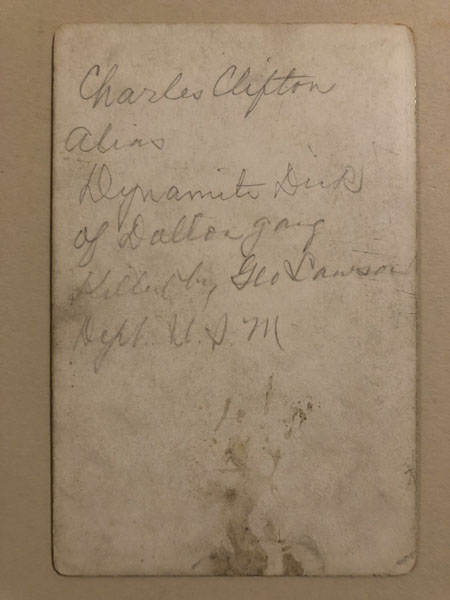 Charles Clifton
alias
Dynamite Dick
of Dalton gang
Killed by Geo Lawson
Dept. U. S. M